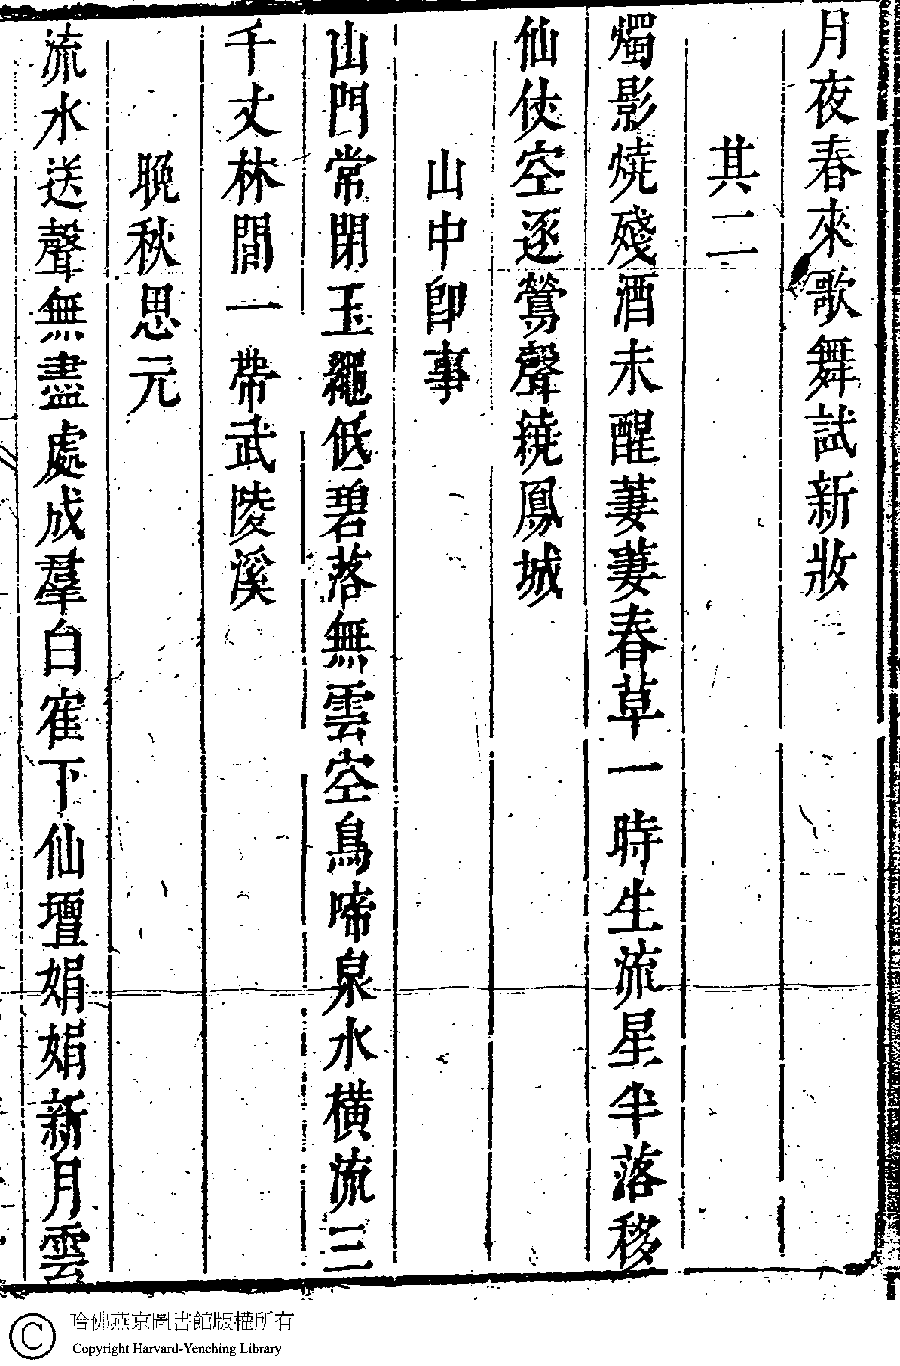 月夜春來歌舞試新妝
其二
燭影燒殘酒未醒萋萋春草一時生流星半落移
仙伎空逐鶯聲繞鳳城
山中即事
山門常閉玉繩低碧落無雲空鳥啼泉水橫流三
千丈林間一帶武陵溪
晚秋思元
流水送聲無盡處成羣白寉下仙壇娟娟新月雲
哈佛燕京圖書館版權所有
© Copyright Harvard-Yenching Library